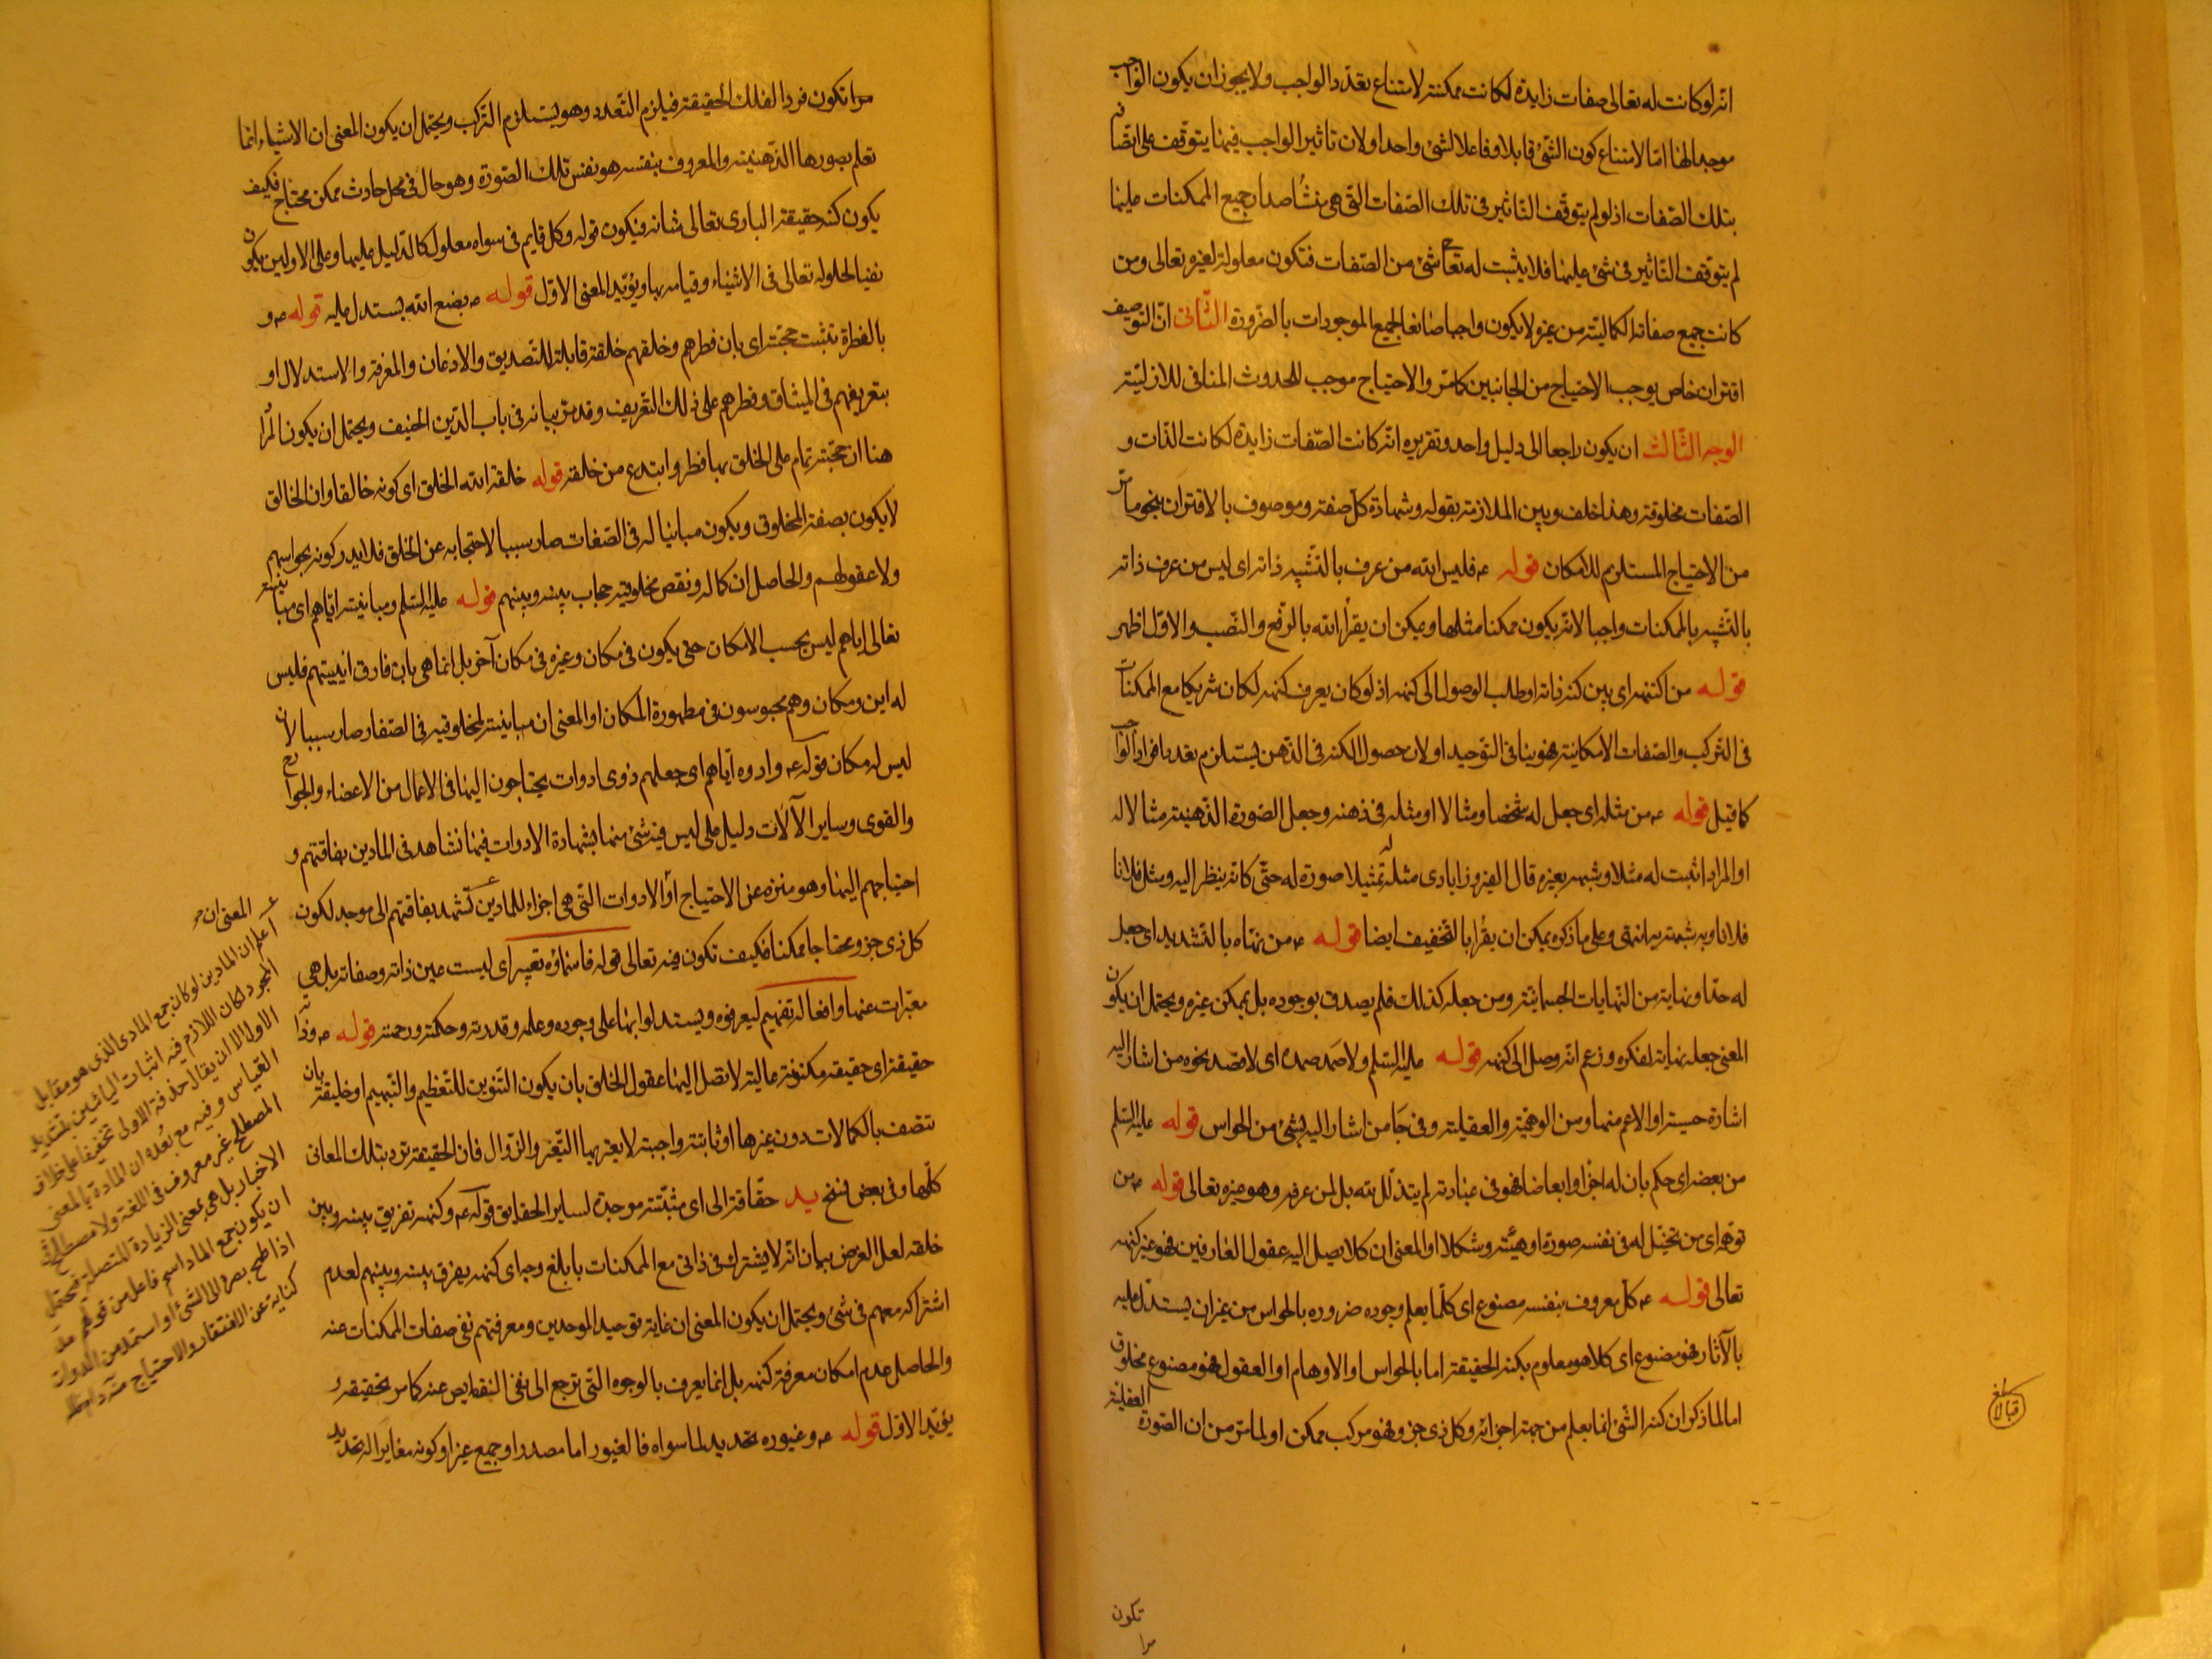 انه لو كانت له تعالى صفات زايدة لكانت ممكنة لامتناع تعدد الواجب ولا يجوز ان يكون الواجب
موجدا لها اما لامتناع كون الشئ قابلا وفاعلا لشئ واحد او لان تاثير الواجب فيها يتوقف على اتصافه
بتلك الصفات اذ لو لم يتوقف التاثير فى تلك الصفات التى هى منشأ صدور جميع الممكنات عليها
لم يتوقف التاثير فى شئ عليها فلا يثبت له تعالى شئ من الصفات فتكون معلولة لغيره تعالى ومن
كانت جميع صفاته الكمالية من غيره لا يكون واجبا صانعا لجميع الموجودات بالضرورة الثانى ان التوصيف
اقتران خاص يوجب الاحتياج من الجانبين كما مر والاحتياج موجب للحدوث المنافى للازلية
الوجه الثالث ان يكون راجعا الى دليل واحد وتقريره انه لو كانت الصفات زايدة لكانت الذات و
الصفات مخلوقة وهذا خلف وبين الملازمة بقوله وشهادة كل صفة وموصوف بالاقتران بنحو ما مر
من الاحتياج المستلزم للامكان قوله ع فليس الله من عرف بالتشبيه ذاته اى ليس من عرف ذاته
بالتشبيه بالممكنات واجبا لانه يكون ممكنا مثلها ويمكن ان يقرأ الله بالرفع والنصب والاول اظهر
قوله من اكتنهه اى بين كنه ذاته او طلب الوصول الى كنهه اذ لو كان يعرف كنهه لكان شريكا مع الممكنات
فى التركيب والصفات الامكانية وهو ينافى التوحيد او لان حصول الكنه فى الذهن يستلزم تعدد افراد الواجب
كما قيل قوله ع من مثله اى جعل له شخصا ومثالا او مثله فى ذهنه وجعل الصورة الذهنية مثالا له
او المراد اثبت له مثلا وشبهه بغيره قال الفيروزابادى مثله له تمثيلا صورة له حتى كانه ينظر اليه ومثل فلانا
فلانا وبه شبهه به انتهى وعلى ما ذكره يمكن ان يقرأ بالتخفيف ايضا قوله ع من نهاه بالتشديد اى جعل
له حدا ونهاية من النهايات الجسمانية ومن جعله كذلك فلم يصدق بوجوده بل بممكن غيره ويحتمل ان يكون
المعنى جعله نهاية لفكره وزعم انه وصل الى كنهه قوله عليه السلم ولا صمد صمده اى لا قصد نحوه من اشار اليه
اشارة حسية او الاعم منها ومن الوهمية والعقلية وفى جا من اشار اليه بشئ من الحواس قوله عليه السلم
من بعضه اى حكم بان له اجزاء وابعاضا فهو فى عبادته لم يتذلل لله بل لمن عرفه وهو غيره تعالى قوله ع من
توهمه اى من تخيل له فى نفسه صورة او هيئة وشكلا او المعنى ان كلما يصل اليه عقول العارفين فهو غير كنهه
تعالى قوله ع كل معروف بنفسه مصنوع اى كلما يعلم وجوده ضرورة بالحواس من غير ان يستدل عليه
بالآثار فهو مصنوع اى كلما هو معلوم بكنه الحقيقة اما بالحواس او الاوهام او العقول فهو مصنوع مخلوق
اما لما ذكر ان كنه الشئ انما يعلم من جهة اجزائه وكل ذى جزء فهو مركب ممكن او لما مر من ان الصورة العقلية
تكون
مرا
بلغ
قبالا
مرا تكون فردا لتلك الحقيقة فيلزم التعدد وهو يستلزم التركب ويحتمل ان يكون المعنى ان الاشياء انما
تعلم بصورها الذهنية والمعروف بنفسه هو نفس تلك الصورة وهو حال فى محل حادث ممكن محتاج فكيف
يكون كنه حقيقة البارى تعالى شانه فيكون قوله وكل قايم فى سواه معلول كالدليل عليها وعلى الاولين يكون
نفيا لحلوله تعالى فى الاشياء وقيامه بها ويؤيد المعنى الاول قوله ع بصنع الله يستدل عليه قوله ع و
بالفطرة تثبت حجته اى بان فطرهم وخلقهم خلقة قابلة للتصديق والاذعان والمعرفة والاستدلال او
بتعريفهم فى الميثاق وفطرهم على ذلك التعريف وقد مر بيانه فى باب الدين الحنيف ويحتمل ان يكون المراد
هنا ان حجته تمام على الخلق بما فطر وابتدع من خلقه قوله خلقة الله الخلق اى كونه خالقا وان الخالق
لا يكون بصفة المخلوق ويكون مباينا له فى الصفات صار سببا لاحتجابه عن الخلق فلا يدركونه بحواسهم
ولا عقولهم والحاصل ان كماله ونقص مخلوقيه حجاب بينه وبينهم قوله عليه السلم ومباينته اياهم اى مباينته
تعالى اياهم ليس بحسب الامكان حتى يكون فى مكان وغيره فى مكان آخر بل انما هى بان فارق اينيتهم فليس
له اين ومكان وهم محبوسون فى مطمورة المكان او المعنى ان مباينته لمخلوقيه فى الصفات صار سببا لان
ليس له مكان قوله ع وادوه اياهم اى جعلهم ذوى ادوات يحتاجون اليها فى الاعمال من الاعضاء والجوارح
والقوى وساير الآلات دليل على ليس فيه شئ منها بشهادة الادوات فيما نشاهد فى المادين بفاقتهم و
احتياجهم اليها وهو منزه عن الاحتياج او الادوات التى هى اجزاء للمادين تشهد بفاقتهم الى موجد لكون
كل ذى جزو محتاجا ممكنا فكيف تكون فيه تعالى قوله فاسماؤه تعبير اى ليست عين ذاته وصفاته بل هى
معبرات عنها وافعاله تفهيم ليعرفوه ويستدلوا بها على وجوده وعلمه وقدرته وحكمته ورحمته قوله ع وذاته
حقيقة اى حقيقة مكنونة عالية لا تصل اليها عقول الخلق بان يكون التنوين للتعظيم والتبهيم او خليقة بان
تتصف بالكمالات دون غيرها او ثابتة واجبة لا يعتريها التغير والزوال فان الحقيقة ترد بتلك المعانى
كلها وفى بعض نسخ يد حقاقة الى اى مثبتة موجدة لساير الحقايق قوله ع وكنهه تفريق بينه وبين
خلقه لعل الغرض بيان انه لا يشترك فى ذاتى مع الممكنات بابلغ وجه اى كنهه يفرق بينه وبينهم لعدم
اشتراكه معهم فى شئ ويحتمل ان يكون المعنى ان غاية توحيد الموحدين ومعرفتهم نفى صفات الممكنات عنه
والحاصل عدم امكان معرفة كنهه بل انما يعرف بالوجوه التى ترجع الى نفى النقايص عنه كما مر تحقيقه
يؤيد الاول قوله ع وغيوره تحديد لما سواه فالغيور اما مصدر او جمع غير او كونه مغايرا له تحديد
المعنى ان
اعلم ان المادين لو كان جمع المادى الذى هو مقابل
المجرد لكان اللازم فيه اثبات اليائين بتشديد
الاول الا ان يقال حذفة الاولى تخفيفا على خلاف
القياس وفيه مع بعده ان المادة بالمعنى
المصطلح غير معروف فى اللغة ولا مصطلح فى
الاخبار بل هى بمعنى الزيادة المتصلة فيحتمل
ان يكون جمع الماد اسم فاعل من قولهم مد
اذا طمح بصره الى الشئ او استمد من الدواة
كناية عن الافتقار والاحتياج منه